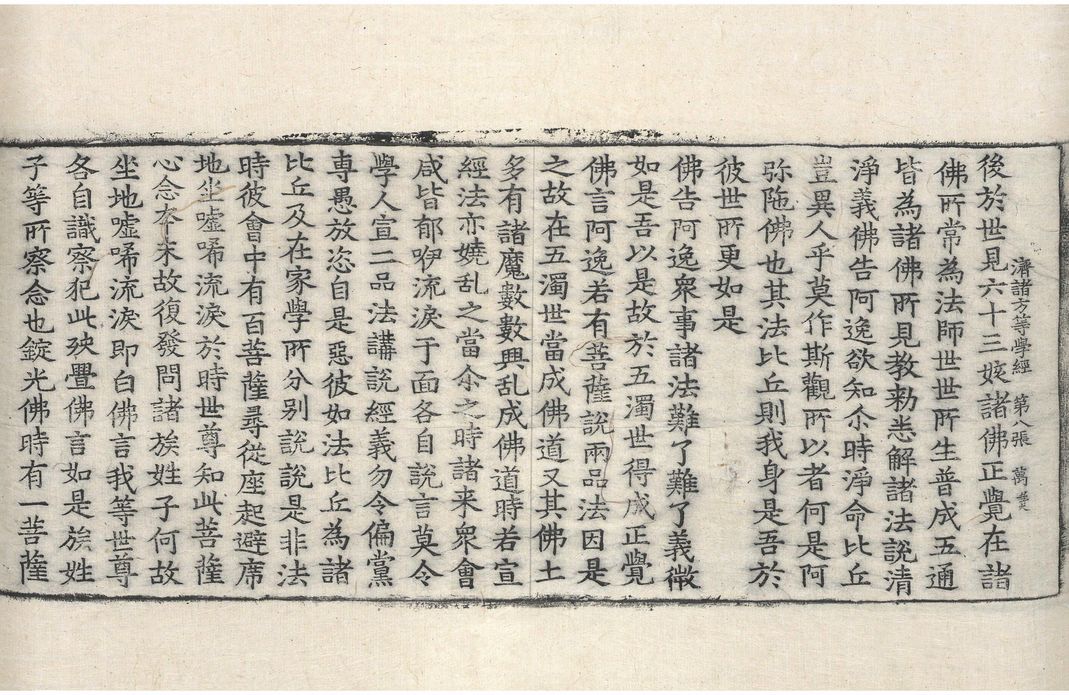 濟諸方等學經 第八張 萬
後於世見六十三姟諸佛正覺在諸
佛所常為法師世世所生普成五通
皆為諸佛所見教勑悉解諸法說清
淨義佛告阿逸欲知尒時淨命比丘
豈異人乎莫作斯觀所以者何是阿
弥陁佛也其法比丘則我身是吾於
彼世所更如是
佛告阿逸衆事諸法難了難了義微
如是吾以是故於五濁世得成正覺
佛言阿逸若有菩薩說兩品法因是
之故在五濁世當成佛道又其佛土
多有諸魔數數興乱成佛道時若宣
經法亦嬈乱之當尒之時諸来衆會
咸皆郁咿流淚于面各自說言莫令
學人宣二品法講說經義勿令偏黨
専愚放恣自是惡彼如法比丘為諸
比丘及在家學所分別說說是非法
時彼會中有百菩薩尋從座起避席
地坐噓唏流淚於時世尊知此菩薩
心念本末故復發問諸族姓子何故
坐地噓唏流淚即白佛言我等世尊
各自識察犯此殃舋佛言如是族姓
子等所察念也錠光佛時有一菩薩